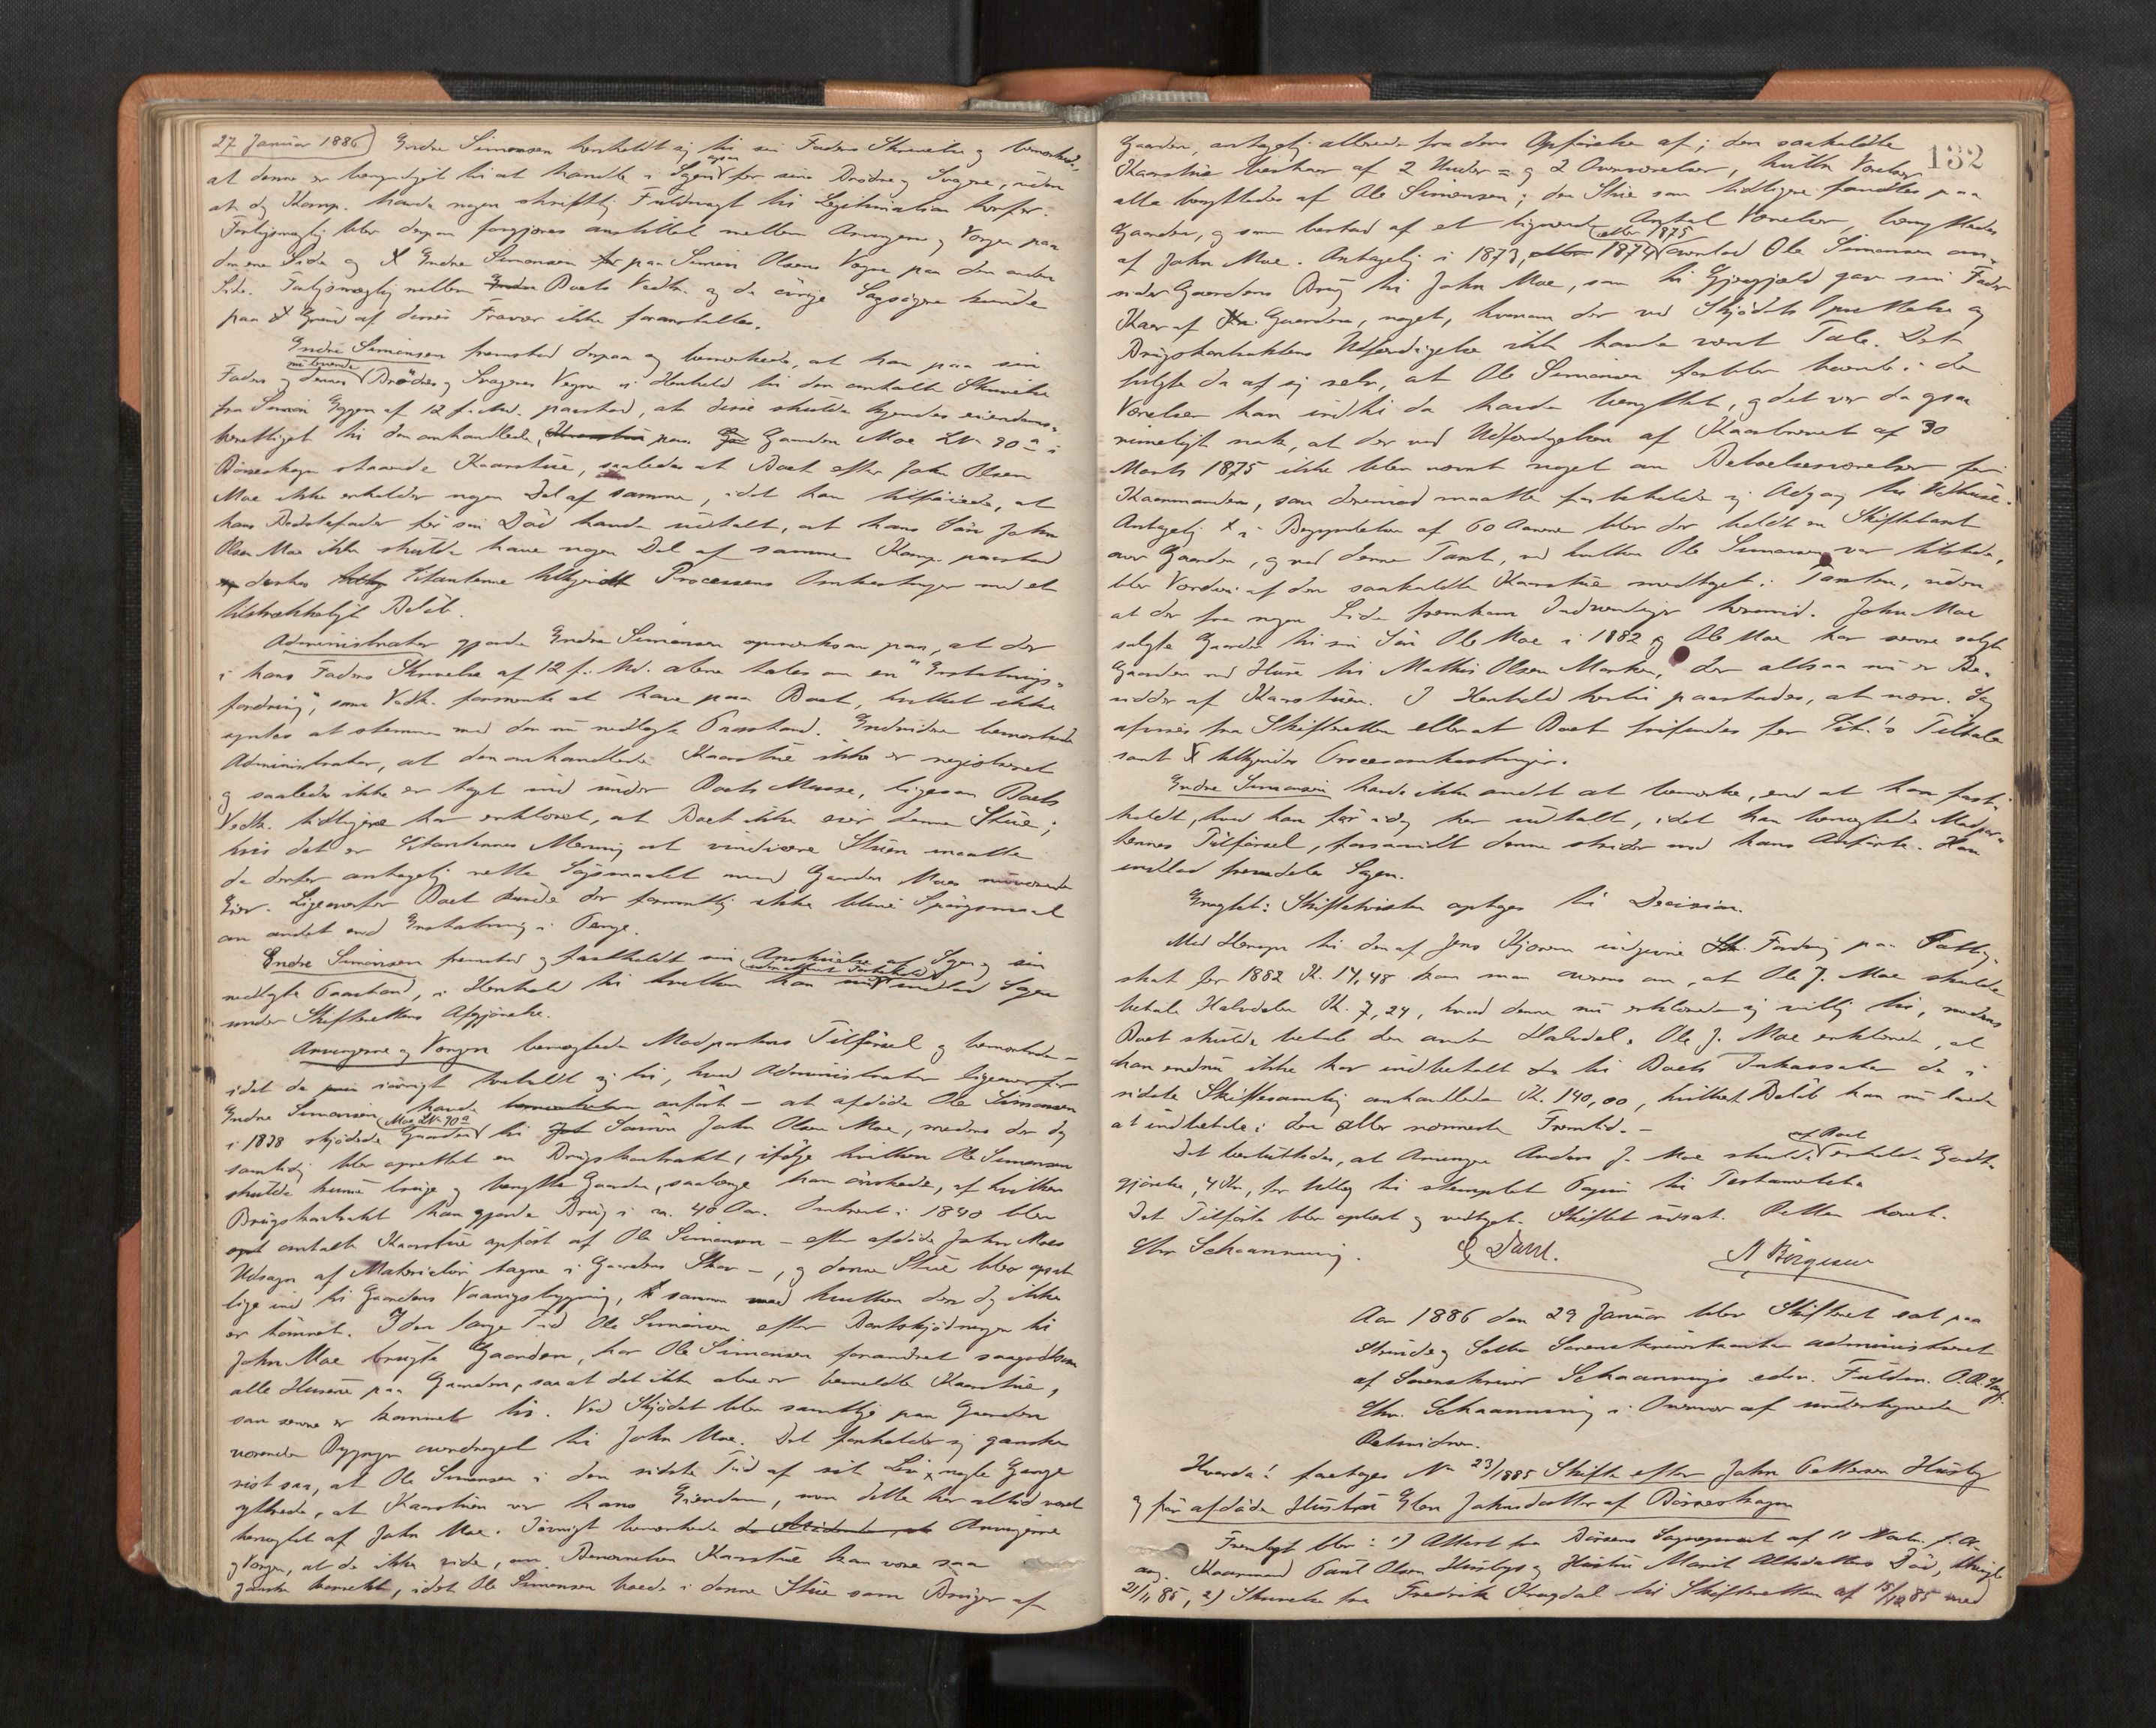 27 Januar 1886) Endre Simonsen henholdt sig til sin Faders Skrivelse og bemærkede,
at denne er bemyndiget til at handle i Sagen ogsaa for sine Brødre og Svogre, uden
at dog Komp. havde nogen skriftlig Fuldmagt til Legitimation herfor.
Forligsmægling blev derpaa forgjæves anstillet mellem Arvingerne og Vergen paa
den ene Side og Endre Simonsen for paa Simon Olsens Vegne paa den anden
Side. Forligsmægling mellem Boets Vedk. og de øvrige Sagsøgere kunde
paa Grund af disses Fravær ikke foranstaltes.
Endre Simonsen fremstod derpaa og bemærkede, at han paa sin
Faders og dennes nulevende Brødres og Svogeres Vegne i Henhold til den omhandlede Skrivelse
fra Simon Eggen af 12 f. Md. paastod, at disse skulde kjendes eiendoms-
berettiget til den omhandlede, Kaarstue paa Gaarden Moe LNr 90a i
Børseskogn staaende Kaarstue, saaledes at Boet efter John Olsen
Moe ikke erholder nogen Del af samme, idet han tilføiede, at
hans Bedstefader før sin Død havde udtalt, at hans Søn John
Olsen Moe ikke skulde have nogen Del af samme. Komp. paastod
derhos Citanterne tilkjendt Processens Omkostninger med et
tilstrækkeligt Beløb.
Administrator gjorde Endre Simonsen opmærksom paa, at der
i hans Faders Skrivelse af 12 f. Md. alene tales om en "Erstatnings-
fordring", som Vedk. formente at have paa Boet, hvilket ikke
syntes at stemme med den nu nedlagte Paastand. Endvidere bemærkede
Administrator, at den omhandlede Kaarstue ikke er registreret
og saaledes ikke er taget ind under Boets Masse, ligesom Boets
Vedk. tidligere har erklæret, at Boet ikke eier denne Stue;
hvis det er Citanternes Mening at vindicere Stuen maatte
de derfor antagelig rette Søgsmaalet mod Gaarden Moes nuværende
Eier. Ligeoverfor Boet kunde der formentlig ikke blive Spørgsmaal
om andet end Erstatning i Penge.
Endre Simonsen fremstod og fastholdt sin Anskuelse af Sagen og sin
nedlagte Paastand, i Henhold til hvilken han uden andet Forbehold indlod Sagen
under Skifterettens Afgjørelse.
Arvingerne og Vergen benægtede Modpartens Tilførsel og bemærkede –
idet de iøvrigt henholdt sig til, hvad Administrator ligeoverfor
Endre Simonsen havde bemærket anført – at afdøde Ole Simonsen
i 1838 skjødede Gaarden Moe LNr 90a til Sønnen John Olsen Moe, medens der dog
samtidig blev oprettet en Brugskontrakt, ifølge hvilken Ole Simonsen
skulde kunne bruge og benytte Gaarden, saalænge han ønskede, af hvilken
Brugskontrakt han gjorde Brug i ca. 40 Aar. Omtrent i 1840 blev
omtalte Kaarstue opført af Ole Simonsen – efter afdøde John Moes
Udsagn af Materialier tagne i Gaardens Skov –, og denne Stue blev opsat
lige ind til Gaardens Vaaningsbygning, sammen med hvilken den dog ikke
er tømret. I den lange Tid Ole Simonsen efter Bortskjødningen til
John Moe brugte Gaarden, har Ole Simonsen forandret saagodtsom
alle Husene paa Gaarden, saa at det ikke alene er bemeldte Kaarstue,
som senere er kommet til. Ved Skjødet blev samtlige paa Gaarden
værende Bygninger overdraget til John Moe. Det forholder sig ganske
vist saa, at Ole Simonsen i den sidste Tid af sit Liv nogle Gange
yttrede, at Kaarstuen var hans Eiendom, men dette har altid været
benægtet af John Moe. Iøvrigt bemærkede Arvingerne
og Vergen, at de ikke vide, om Benævnelsen Kaarstue kan være saa
ganske korrekt, idet Ole Simonsen boede i denne Stue som Bruger af
132
Gaarden, antagelig allerede fra dens Opførelse af; den saakaldte
Kaarstue bestaar af 2 Under- og 2 Overværelser, hvilke Værelser
alle benyttedes af Ole Simonsen; den Stue som tidligere fandtes paa
Gaarden, og som bestod af et lignende Antal Værelser, benyttedes
af John Moe. Antagelig i 1873, eller 1874 eller 1875 overlod Ole Simonsen om-
sider Gaardens Brug til John Moe, som til Gjengjæld gav sin Fader
Kaar af Gaarden, noget, hvorom der ved Skjødets Oprettelse og
Brugskontraktens Udfærdigelse ikke havde været Tale. Det
fulgte da af sig selv, at Ole Simonsen forblev boende i de
Værelser han indtil da havde benyttet, og det var da ogsaa
rimeligt nok, at der ved Udfærdigelsen af Kaarbrevet af 30
Marts 1875 ikke blev nævnt noget om Beboelsesværelser for
Kaarmanden, som derimod maatte forbeholde sig Adgang til Udhuse.
Antagelig i Begyndelsen af 60 Aarene blev der holdt en Skiftetaxt
over Gaarden, og ved denne Taxt, ved hvilken Ole Simonsen var tilstede,
blev Værdien af den saakaldte Kaarstue medtaget i Taxten, uden
at der fra nogen Side fremkom Indvendinger herimod. John Moe
solgte Gaarden til sin Søn Ole Moe i 1882 og Ole Moe har senere solgt
Gaarden med Huse til Mathis Olsen Marken, der altsaa nu er Be-
sidder af Kaarstuen. I Henhold hertil paastodes, at nærv. Sag
afvises fra Skifteretten eller at Boet frifindes for Cit.'s Tiltale
samt tilkjendes Procesomkostninger.
Endre Simonsen havde ikke andet at bemærke, end at han fast-
holdt, hvad han før idag har udtalt, idet han benægtede Modpar-
ternes Tilførsel, forsaavidt denne strider mod hans Anførte. Han
indlod fremdeles Sagen.
Eragtet: Skiftetvisten optages til Decision.
Med Hensyn til den af Jens Kjøren indgivne Fordring paa Fattig-
skat for 1882 Kr. 14,48 kom man overens om, at Ole J. Moe skulde
betale Halvdelen Kr. 7,24, hvad denne nu erklærede sig villig til, medens
Boet skulde betale den anden Halvdel. Ole J. Moe erklærede, at
han endnu ikke har indbetalt til Boets Inkassator de i
sidste Skiftesamling omhandlede Kr. 140,00, hvilket Beløb han nu lovede
at indbetale i den aller nærmeste Fremtid. –
Det besluttedes, at Arvingen Anders J. Moe skulde af Boet erholde Godt-
gjørelse, 4 Kr., for Udlæg til stemplet Papir til Testamentet.
Det Tilførte blev oplæst og vedtaget. Skiftet udsat. Retten hævet.
Chr. Schaanning. E Dahl. A Børgesen
Aar 1886 den 29 Januar blev Skifteret sat paa
Strinde og Selbu Sorenskriverkontor administreret
af Sorenskriver Schaannings edsv. Fuldm.
Chr. Schaanning i Overvær af undertegnede
Retsvidner.
Hvorda: foretoges No 23/1885 Skifte efter John Pettersen Husby
og før afdøde Hustru Elen Johnsdatter af Børseskogn
Fremlagt blev: 1) Attest fra Børsens Sogneprest af 11 Novbr. f. A.
ang. Kaarmand Paul Olsen Husbys og Hustru Marit Død,
21/11 85, 2) Skrivelse fra Fredrik Krogdal til Skifteretten af 15/12 85 med